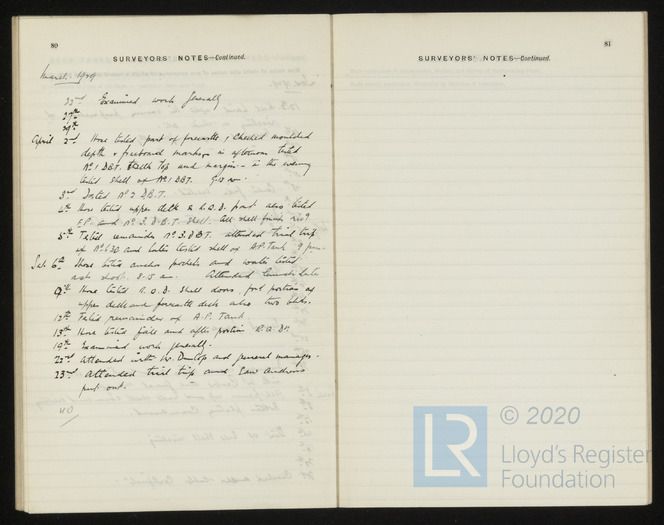 80
SURVEYORS' NOTES—Continued.
March 1929
22nd Examined work generally
27th
29th
April 2nd Hose tested part of forecastle & checked moulded
depth & freeboard markings in afternoon tested
No 1 DBT. Top and margin in the evening
tested shell of No 1 DBT. 9.15 am.
3rd Tested No 2 D.B.T.
4th Hose tested upper deck & R.O.D. port also tested
F.P. and No 3 D.B.T. Shell. All shell
5th Tested remainder No 3 DBT. attended trial trip
of No 630 and later tested shell of A.P. Tank 9 pm.
Sat. 6th Hose tested anchor pockets and water tested
8.15 am. Attended launch later
9th Hose tested R.O.D. Shell doors, port portion of
upper deck and forecastle deck also two
12th Tested remainder of A.P. Tank.
13th Hose tested and after portion R.Q.Dk.
19th Examined work generally.
22nd Attended with Mr Dunlop and general manager.
23rd Attended trial trip and saw anchors
put out.
40
81
SURVEYORS' NOTES—Continued.
LR
© 2020
Lloyd's Register
Foundation